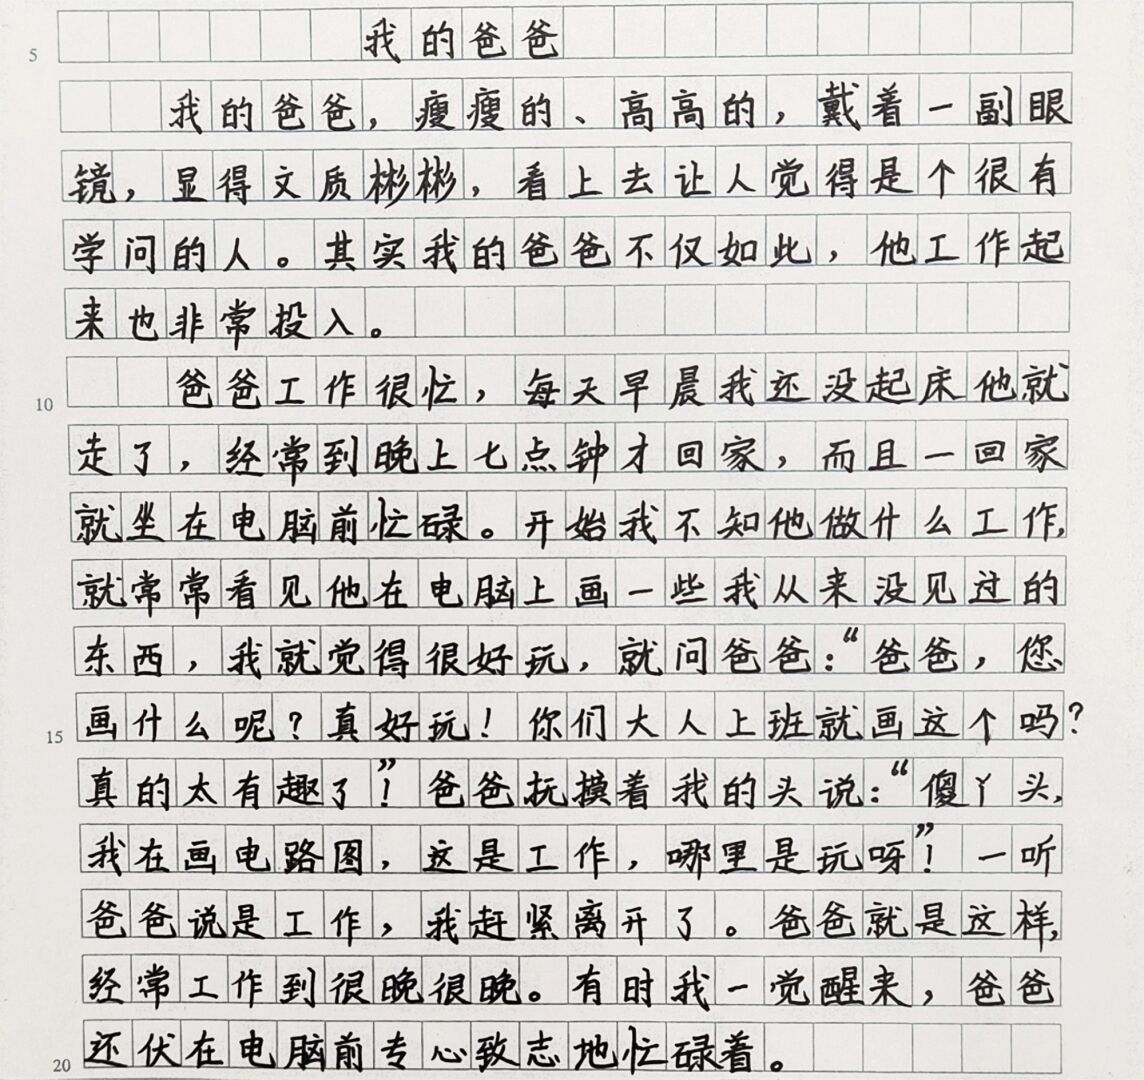 5
我的爸爸
我的爸爸，瘦瘦的、高高的，戴着一副眼
镜，显得文质彬彬，看上去让人觉得是个很有
学问的人。其实我的爸爸不仅如此，他工作起
来也非常投入。
10
爸爸工作很忙，每天早晨我还没起床他就
走了，经常到晚上七点钟才回家，而且一回家
就坐在电脑前忙碌。开始我不知他做什么工作，
就常常看见他在电脑上画一些我从来没见过的
东西，我就觉得很好玩，就问爸爸：“爸爸，您
15
画什么呢？真好玩！你们大人上班就画这个吗？
真的太有趣了”！爸爸抚摸着我的头说：“傻丫头，
我在画电路图，这是工作，哪里是玩呀”！一听
爸爸说是工作，我赶紧离开了。爸爸就是这样，
经常工作到很晚很晚。有时我一觉醒来，爸爸
20
还伏在电脑前专心致志地忙碌着。